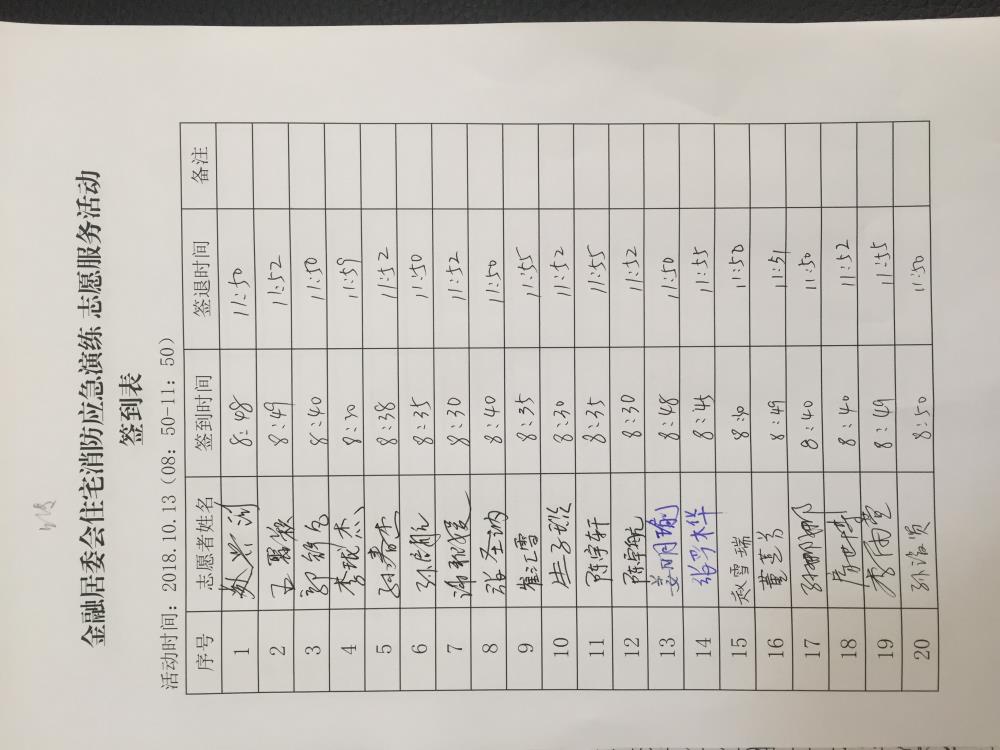 金融居委会住宅消防应急演练 志愿服务活动
签到表
活动时间：2018.10.13（08：50-11：50）
序号 志愿者姓名 签到时间 签退时间 备注
1 8:48 11:50
2 8:49 11:52
3 8:40 11:50
4 8:30 11:59
5 8:38 11:52
6 8:35 11:50
7 8:30 11:52
8 张圣讷 8:40 11:50
9 崔江雪 8:35 11:55
10 8:30 11:52
11 陈宇轩 8:35 11:55
12 陈宇航 8:30 11:52
13 姜明瑜 8:48 11:50
14 8:45 11:55
15 赵雪瑞 8:40 11:50
16 8:49 11:51
17 孙娜娜 8:40 11:50
18 8:40 11:52
19 李雨萱 8:49 11:55
20 8:50 11:50